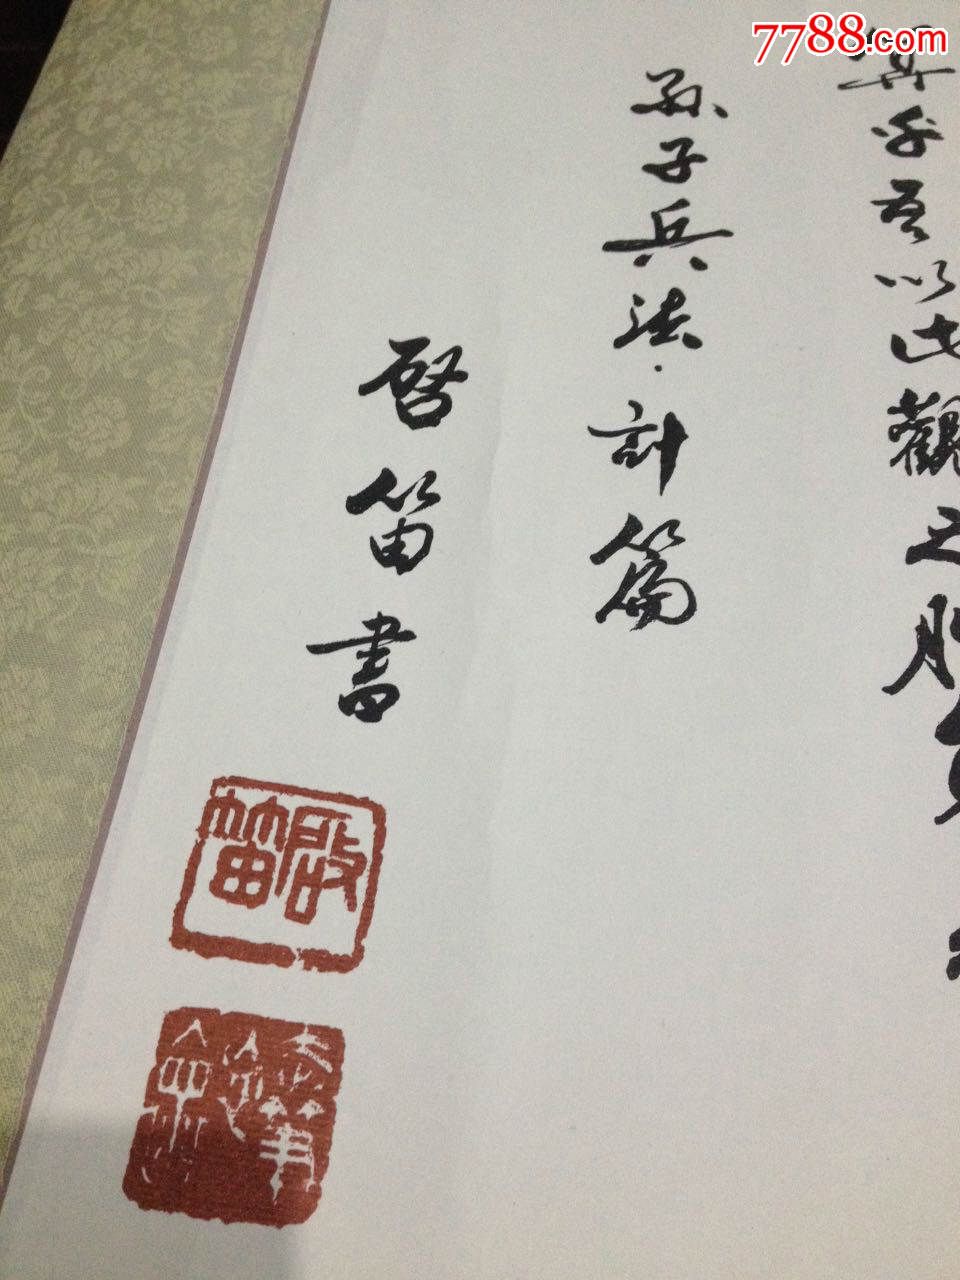 7788.com
算乎吾以此觀之勝負
孫子兵法·計篇
啓笛書
啟笛